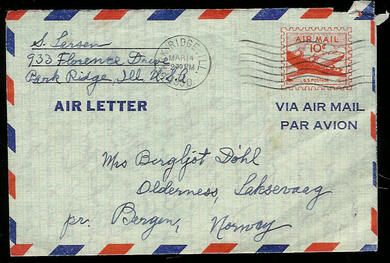 S. Larsen
933 Florence Drive
Park Ridge, Ill U.S.A
PARK RIDGE, ILL.
MAR 14
PM
1950
AIR MAIL
10¢
U.S. POSTAGE
AIR LETTER
VIA AIR MAIL
PAR AVION
Mrs Bergljot Døhl
Olderness, Laksevaag
pr. Bergen, Norway